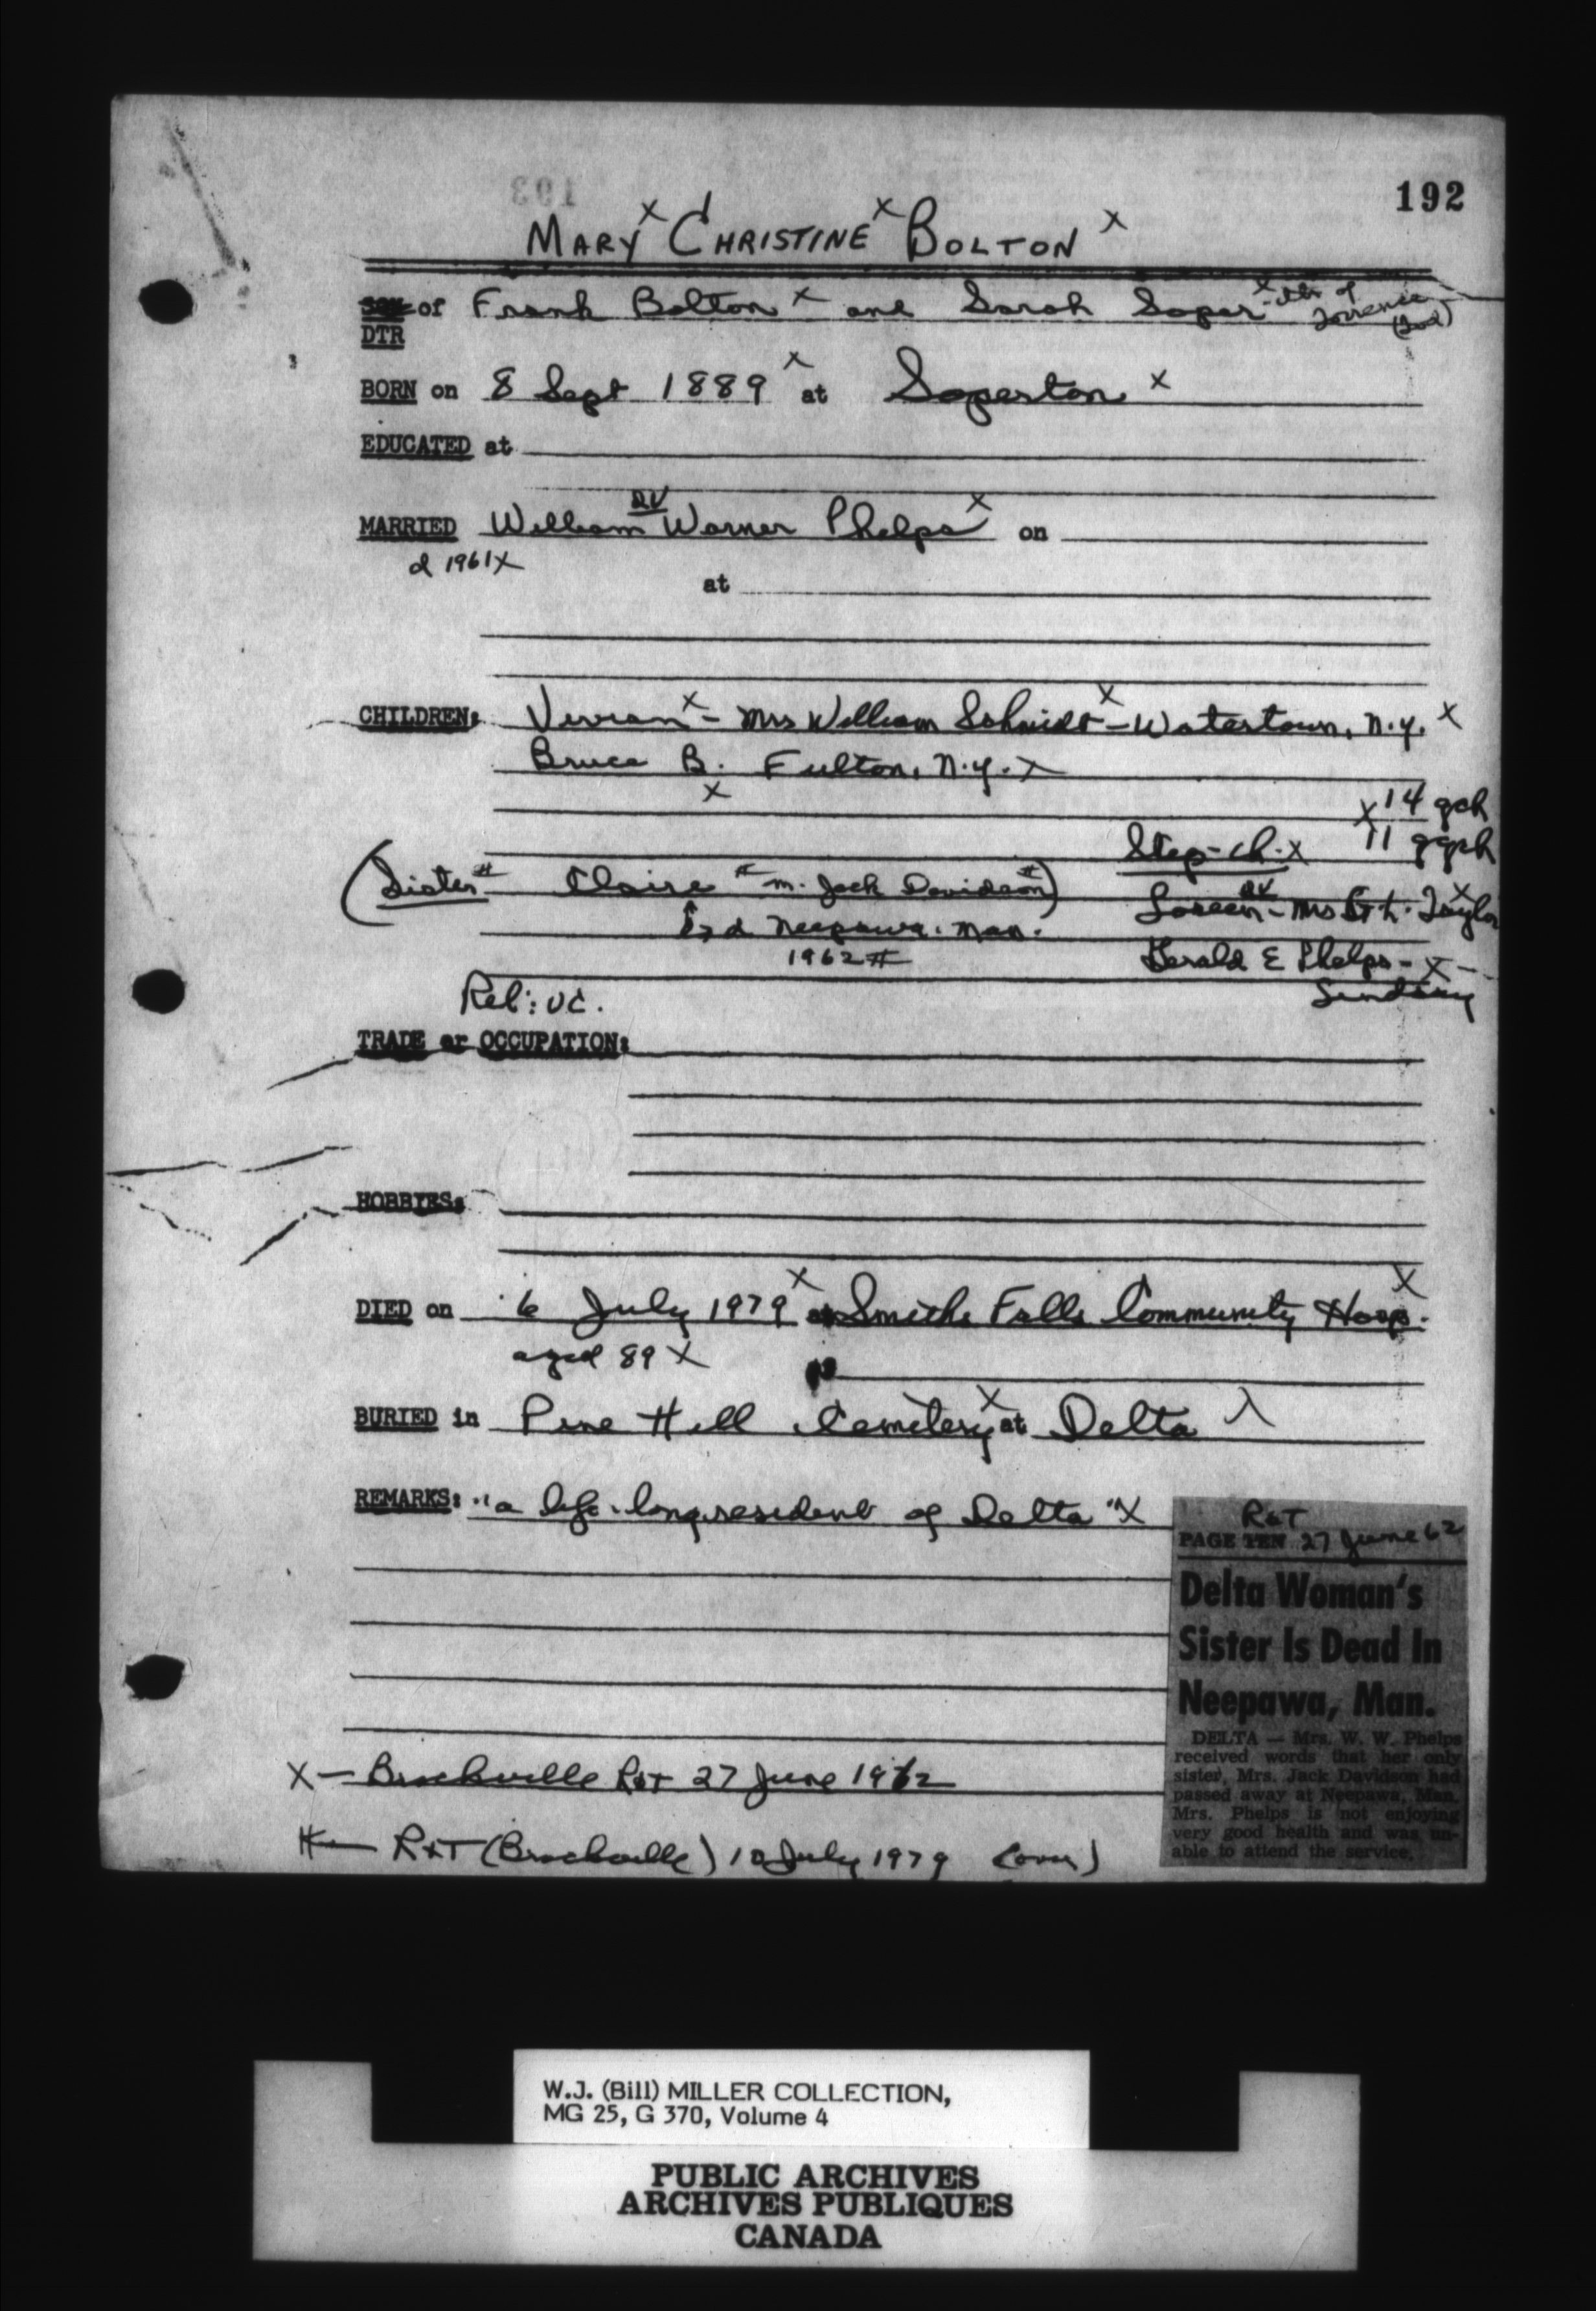 193
192
MARY X CHRISTINE X BOLTON X
SON of Frank Bolton X and Sarah Soper X - dtr of
DTR
BORN on 8 Sept 1889 X at Soperton X
EDUCATED at
MARRIED William Warner Phelps X on
d 1961 X
at
CHILDREN: Vivian X - Mrs William Schmidt X - Watertown, N.Y. X
Bruce B. Fulton, N.Y. X
X
X 14 gch
11 ggch
Step-ch. X
(Sister # Claire # m. Jack Davidson #)
- Mrs Taylor X
d Neepawa. Man.
1962 #
Gerald E Phelps - X -
Lindsay
Rel: UC.
TRADE or OCCUPATION:
HOBBIES:
DIED on 6 July 1979 X at Smiths Falls Community Hosp. X
aged 89 X
BURIED in Pine Hill Cemetery X at Delta X
REMARKS: "a life-long resident of Delta" X
R&T
PAGE TEN 27 June 62
Delta Woman's
Sister Is Dead In
Neepawa, Man.
DELTA — Mrs. W. W. Phelps
received words that her only
sister, Mrs. Jack Davidson had
passed away at Neepawa, Man.
Mrs. Phelps is not enjoying
very good health and was un-
able to attend the service.
X — Brockville R&T 27 June 1962
# — R&T (Brockville) 10 July 1979 (over)
W.J. (Bill) MILLER COLLECTION,
MG 25, G 370, Volume 4
PUBLIC ARCHIVES
ARCHIVES PUBLIQUES
CANADA